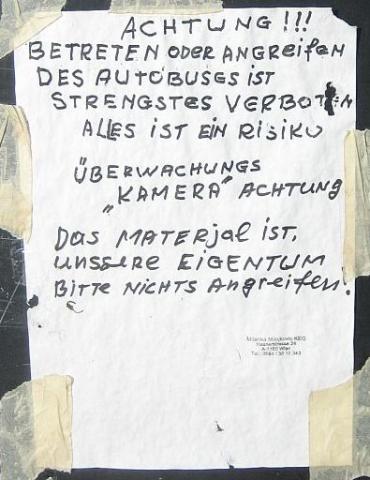 ACHTUNG!!!
BETRETEN ODER ANGREIFEN
DES AUTOBUSES IST
STRENGSTES VERBOTEN
ALLES IST EIN RISIKO
ÜBERWACHUNGS
„KAMERA“ ACHTUNG
DAS MATERJAL IST,
UNSSERE EIGENTUM
BITTE NICHTS ANGREIFEN!